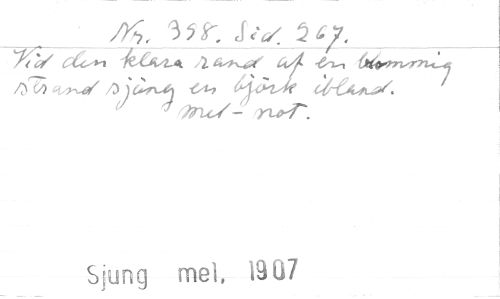 Nr. 398. Sid. 267.
Vid den klara rand af en blommig
strand sjöng en björk ibland.
mel-not.
Sjung mel, 1907